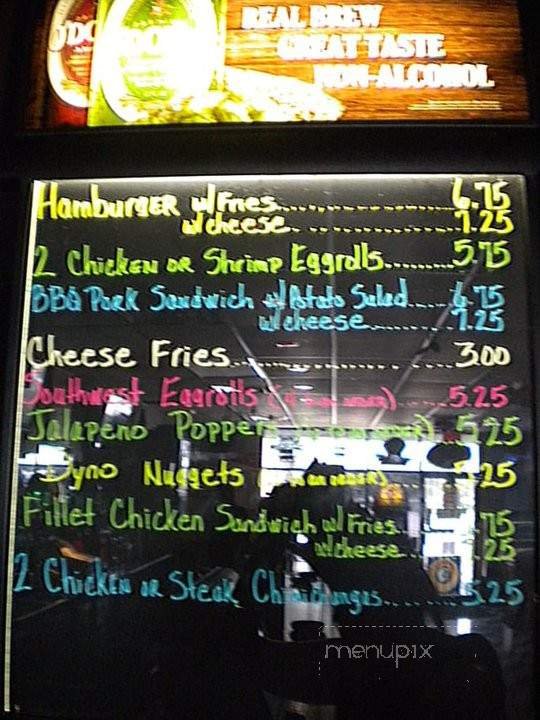 REAL BREW
GREAT TASTE
NON-ALCOHOL
Hamburger w/ Fries............ 6.75
w/ cheese............ 7.25
2 Chicken or Shrimp Eggrolls......... 5.75
BBQ Pork Sandwich w/ Potato Salad..... 6.75
w/ cheese......... 7.25
Cheese Fries............ 3.00
Southwest Eggrolls ..... 5.25
Jalapeno Poppers 5.25
Dyno Nuggets 25
Fillet Chicken Sandwich w/ Fries... 75
w/ cheese........ 25
2 Chicken or Steak Chimichangas......... 5.25
menupix